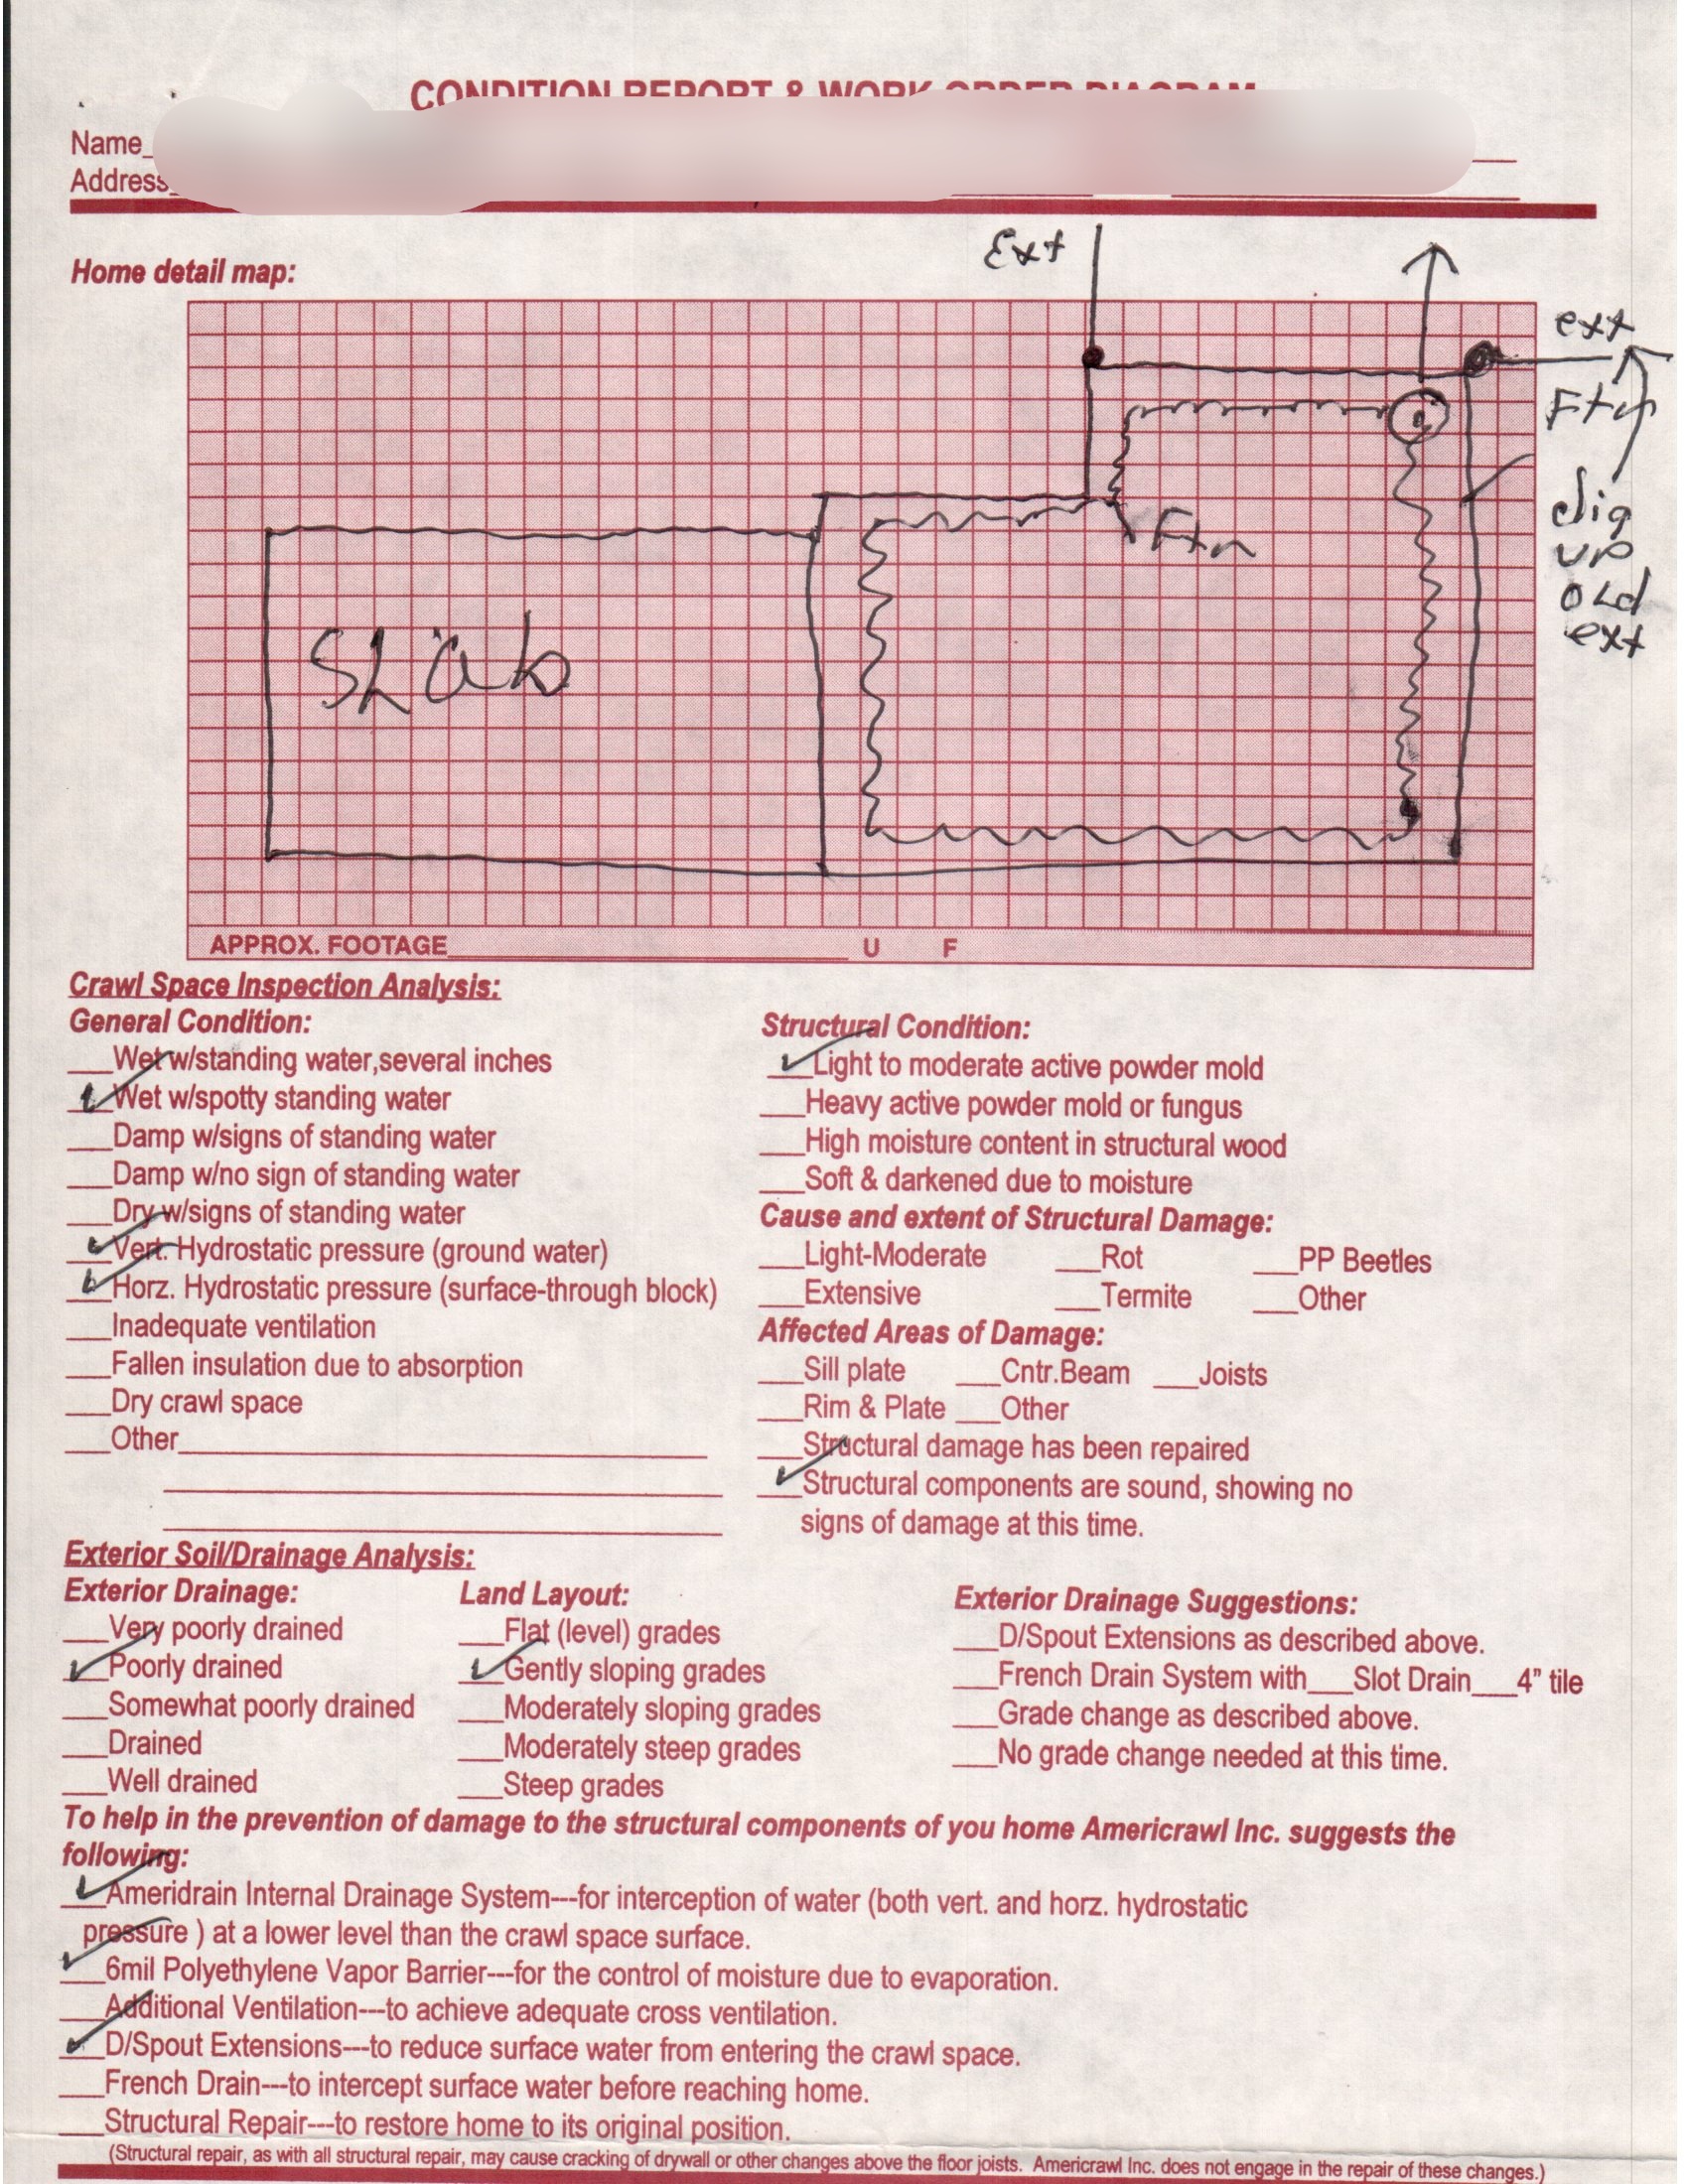 CONDITION REPORT & WORK ORDER DIAGRAM
Name
Address
Ext
Home detail map:
ext
Ftn
dig
up
old
ext
Ftn
Slab
APPROX. FOOTAGE U F
Crawl Space Inspection Analysis:
General Condition:
Wet w/standing water,several inches
Wet w/spotty standing water
Damp w/signs of standing water
Damp w/no sign of standing water
Dry w/signs of standing water
Vert. Hydrostatic pressure (ground water)
Horz. Hydrostatic pressure (surface-through block)
Inadequate ventilation
Fallen insulation due to absorption
Dry crawl space
Other
Structural Condition:
Light to moderate active powder mold
Heavy active powder mold or fungus
High moisture content in structural wood
Soft & darkened due to moisture
Cause and extent of Structural Damage:
Light-Moderate Rot PP Beetles
Extensive Termite Other
Affected Areas of Damage:
Sill plate Cntr.Beam Joists
Rim & Plate Other
Structural damage has been repaired
Structural components are sound, showing no
signs of damage at this time.
Exterior Soil/Drainage Analysis:
Exterior Drainage:
Very poorly drained
Poorly drained
Somewhat poorly drained
Drained
Well drained
Land Layout:
Flat (level) grades
Gently sloping grades
Moderately sloping grades
Moderately steep grades
Steep grades
Exterior Drainage Suggestions:
D/Spout Extensions as described above.
French Drain System with___Slot Drain___4” tile
Grade change as described above.
No grade change needed at this time.
To help in the prevention of damage to the structural components of you home Americrawl Inc. suggests the
following:
Ameridrain Internal Drainage System---for interception of water (both vert. and horz. hydrostatic
pressure ) at a lower level than the crawl space surface.
6mil Polyethylene Vapor Barrier---for the control of moisture due to evaporation.
Additional Ventilation---to achieve adequate cross ventilation.
D/Spout Extensions---to reduce surface water from entering the crawl space.
French Drain---to intercept surface water before reaching home.
Structural Repair---to restore home to its original position.
(Structural repair, as with all structural repair, may cause cracking of drywall or other changes above the floor joists. Americrawl Inc. does not engage in the repair of these changes.)